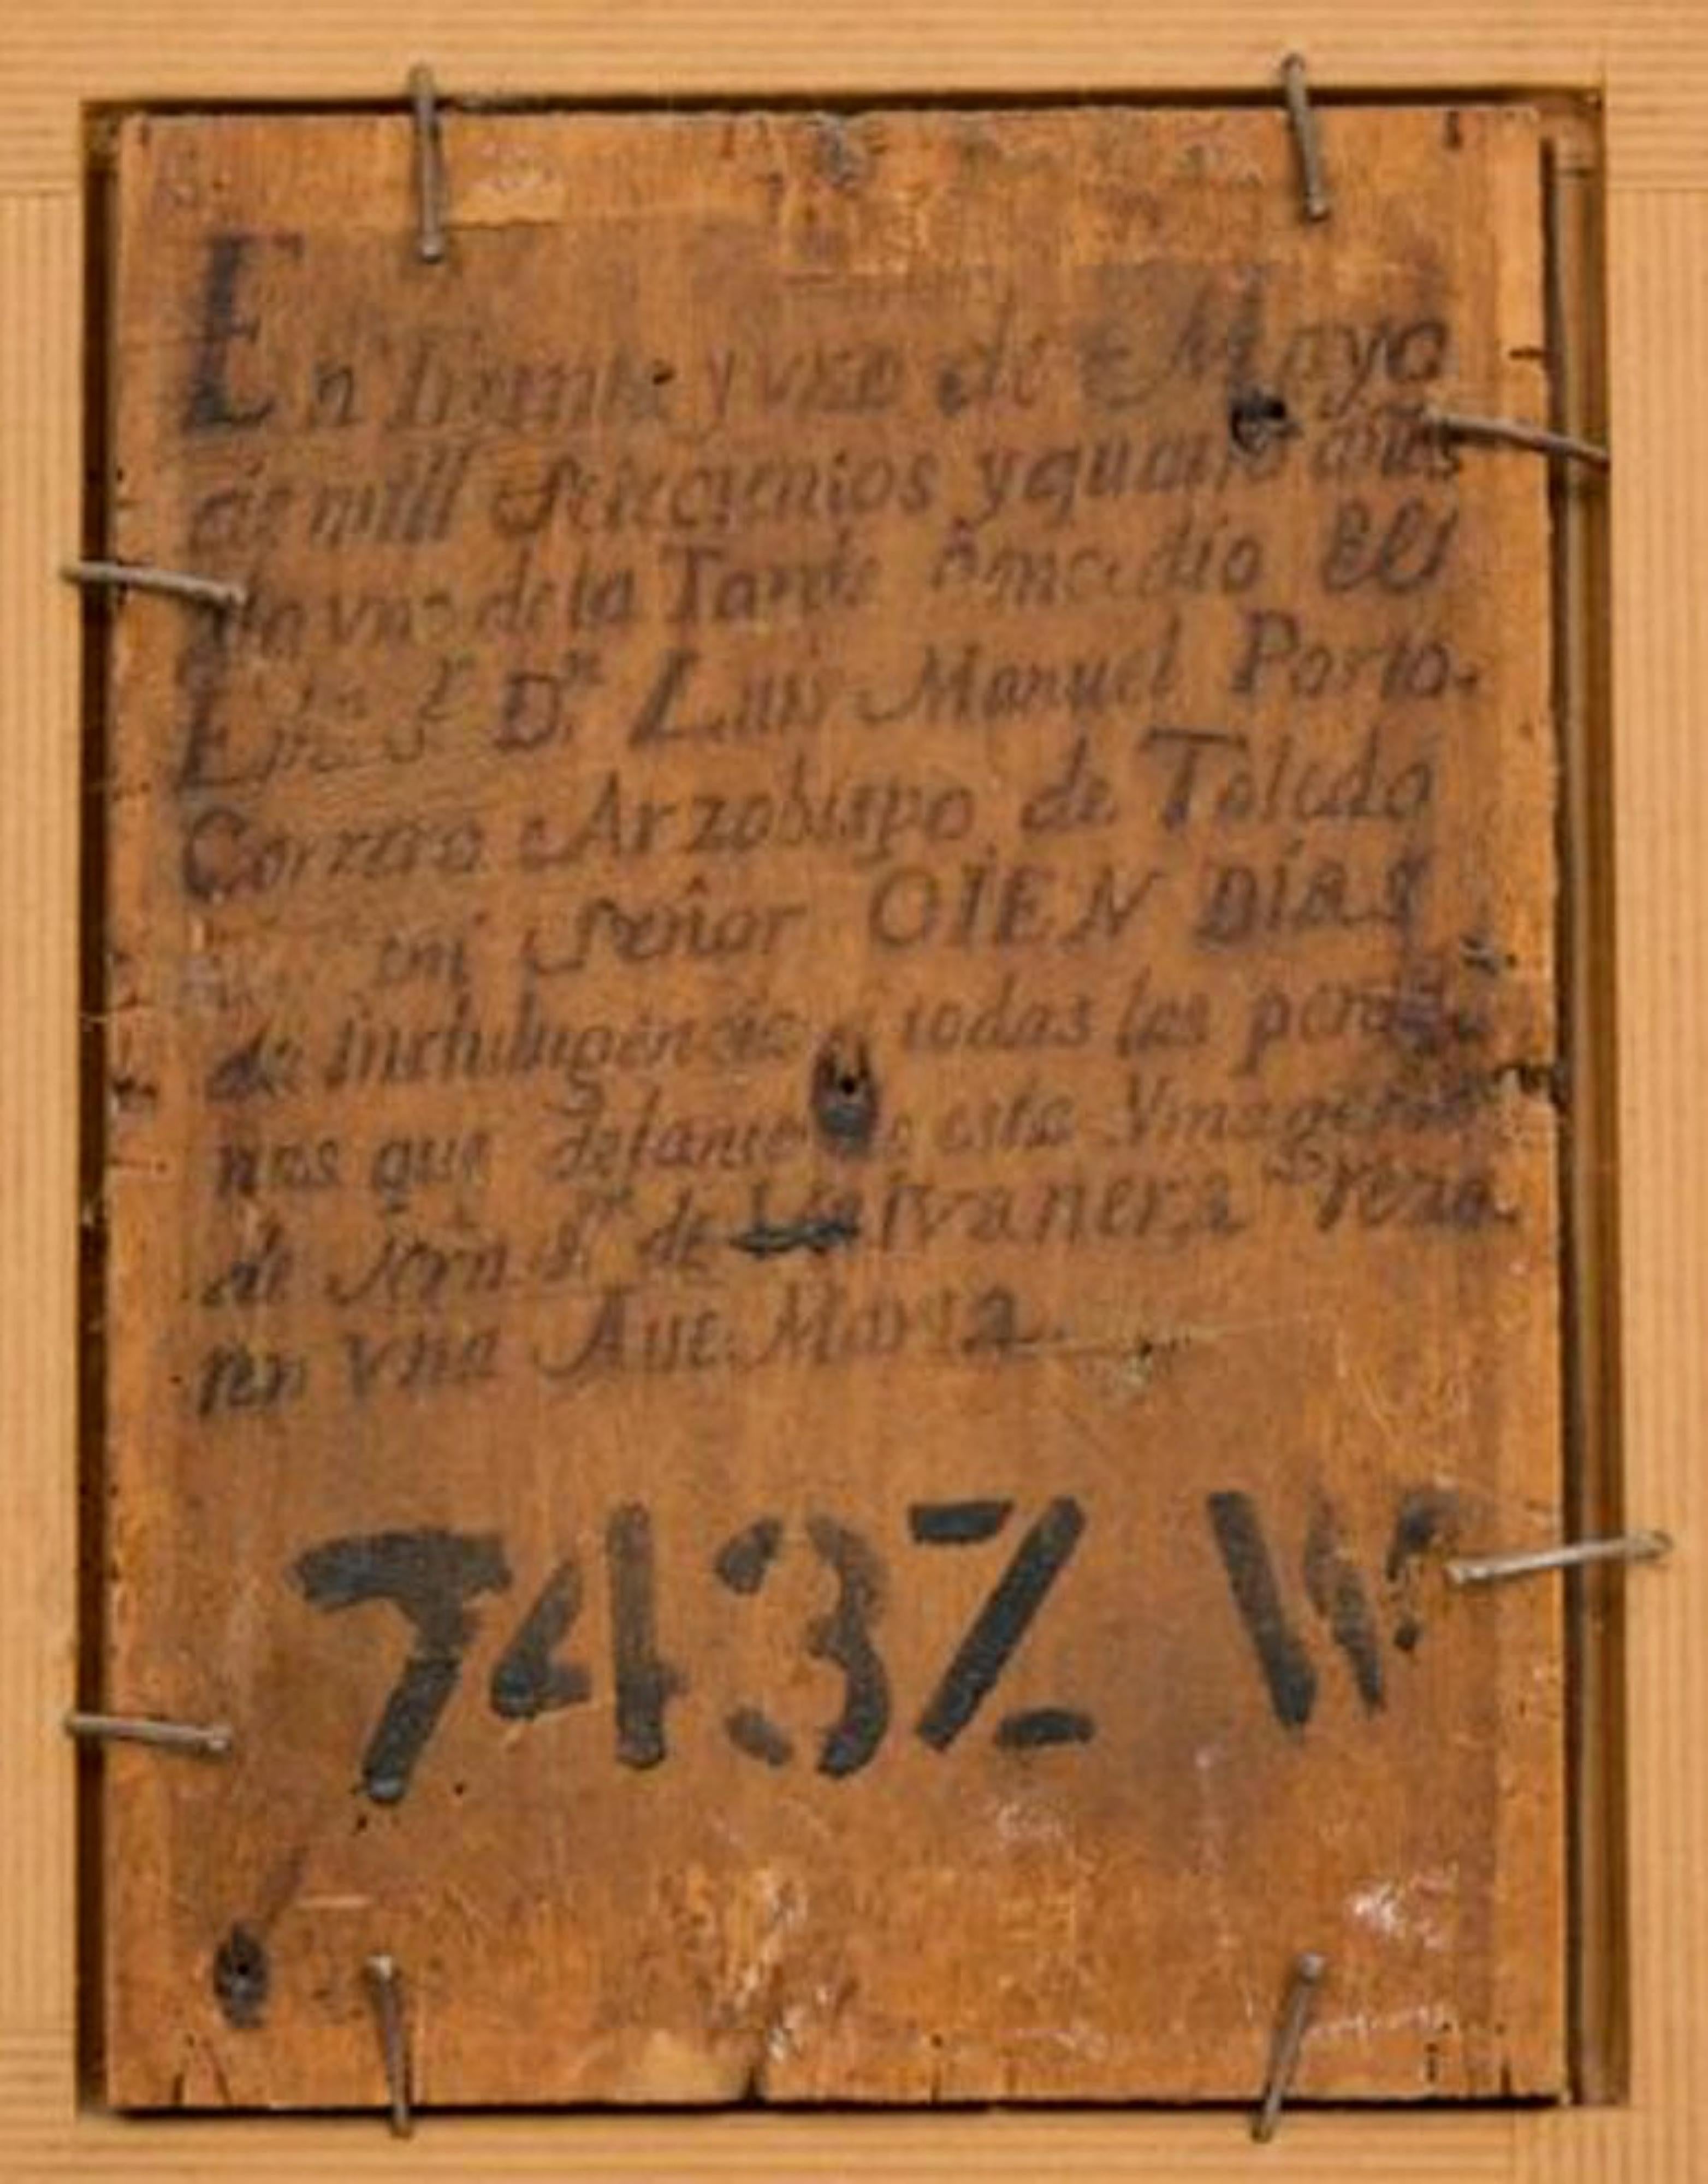 En treinta y uno de Mayo
de mill setecientos y quatro años
la vna de la Tarde âmcedio Ell
Emo. Sr. Dn. Luis Manuel Porto-
Correro Arzobispo de Toledo
mi señor CIEN DÍAS
de indulugencia todas las perso
nas que delante de esta Ymagen
de Sr. de Valvanera Reza-
ren Vna Aue Maria
743Z W